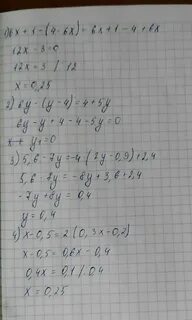 1) 6x + 1 - (4 - 6x) = 6x + 1 - 4 + 6x
12x - 3 = 0
12x = 3 / 12
x = 0,25
2) 6y - (y - 4) = 4 + 5y
6y - y + 4 - 4 - 5y = 0
y = 0
3) 5,6 - 7y = -4 (2y - 0,9) + 2,4
5,6 - 7y = -8y + 3,6 + 2,4
-7y + 8y = 0,4
y = 0,4
4) x - 0,5 = 2 (0,3x - 0,2)
x - 0,5 = 0,6x - 0,4
0,4x = 0,1 / 0,4
x = 0,25